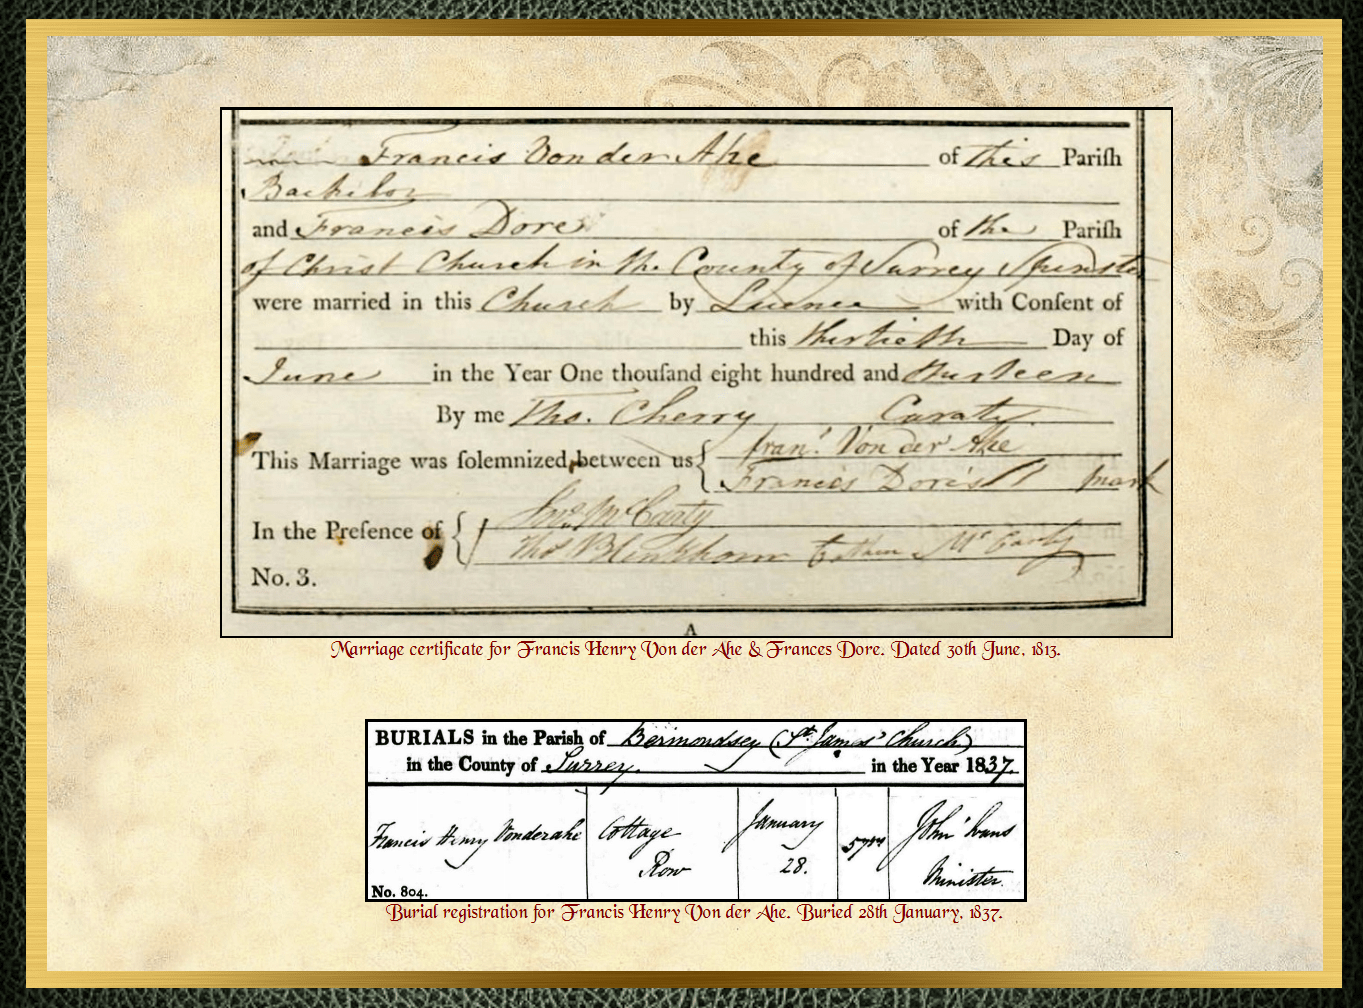 Francis Von der Ahe of this Pariſh
Bachelor
and Francis Dore of the Pariſh
of Christ Church in the County of Surrey Spinster
were married in this Church by Licence with Conſent of
this thirtieth Day of
June in the Year One thouſand eight hundred and thirteen
By me Thos. Cherry Curate
This Marriage was ſolemnized between us { Fran.s Von der Ahe
Francis Dore's mark
In the Preſence of { Jno. McCarty
Thos Blinkhorn McCarty
No. 3.
A
Marriage certificate for Francis Henry Von der Ahe & Frances Dore. Dated 30th June, 1813.
BURIALS in the Parish of Bermondsey (St. James' Church)
in the County of Surrey. in the Year 1837.
Francis Henry Vonderahe Cottage Row January 28. 57 John Evans Minister.
No. 804.
Burial registration for Francis Henry Von der Ahe. Buried 28th January, 1837.